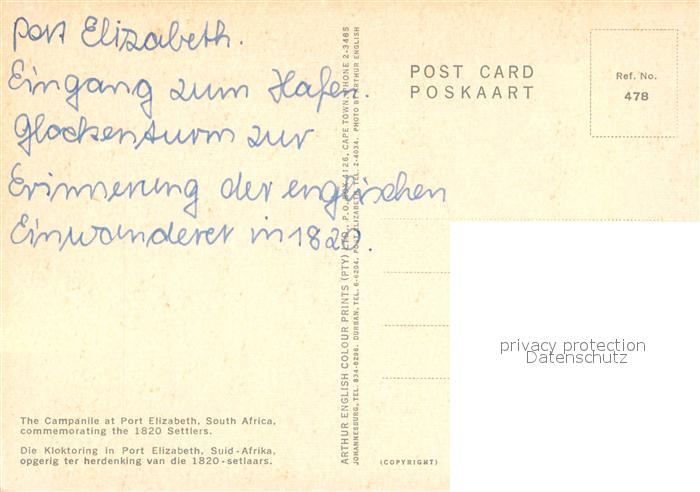 Port Elizabeth.
Eingang zum Hafen.
Glockenturm zur
Erinnerung der englischen
Einwanderer in 1820.
The Campanile at Port Elizabeth, South Africa,
commemorating the 1820 Settlers.
Die Kloktoring in Port Elizabeth, Suid-Afrika,
opgerig ter herdenking van die 1820-setlaars.
ARTHUR ENGLISH COLOUR PRINTS (PTY) LTD., P.O. BOX 4126, CAPE TOWN, PHONE 2-3465
JOHANNESBURG, TEL. 834-6296. DURBAN, TEL. 6-6204. PORT ELIZABETH TEL. 2-4034. PHOTO BY ARTHUR ENGLISH
POST CARD
POSKAART
Ref. No.
478
(COPYRIGHT)
privacy protection
Datenschutz